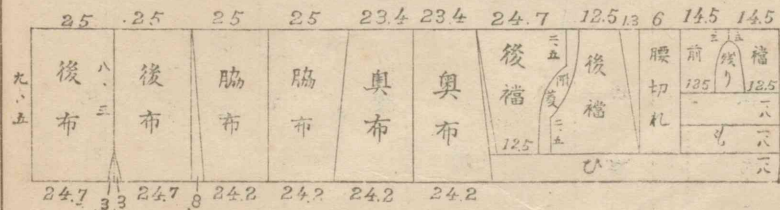 25 25 25 25 23.4 23.4 24.7 12.5 1.3 6 14.5 14.5
九、五
後布
八、三
後布
脇布
脇布
奥布
奥布
後襠
12.5
二、五
二、五
後襠
腰切れ
前
12.5
残り
襠
12.5
ひ
も
一、八
一、八
一、八
24.7 3 3 24.7 .8 24.2 24.2 24.2 24.2